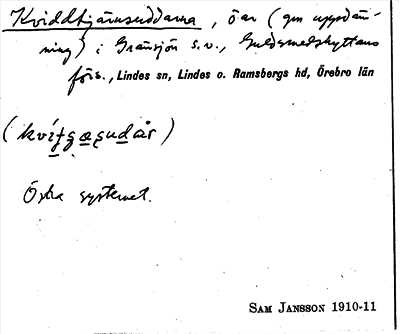 Kviddtjärnsuddarna, öar (gm uppdäm-
ning) i Gränsjön s.v., Guldsmedshyttans
förs., Lindes sn, Lindes o. Ramsbergs hd, Örebro län
Östra systemet.
SAM JANSSON 1910-11